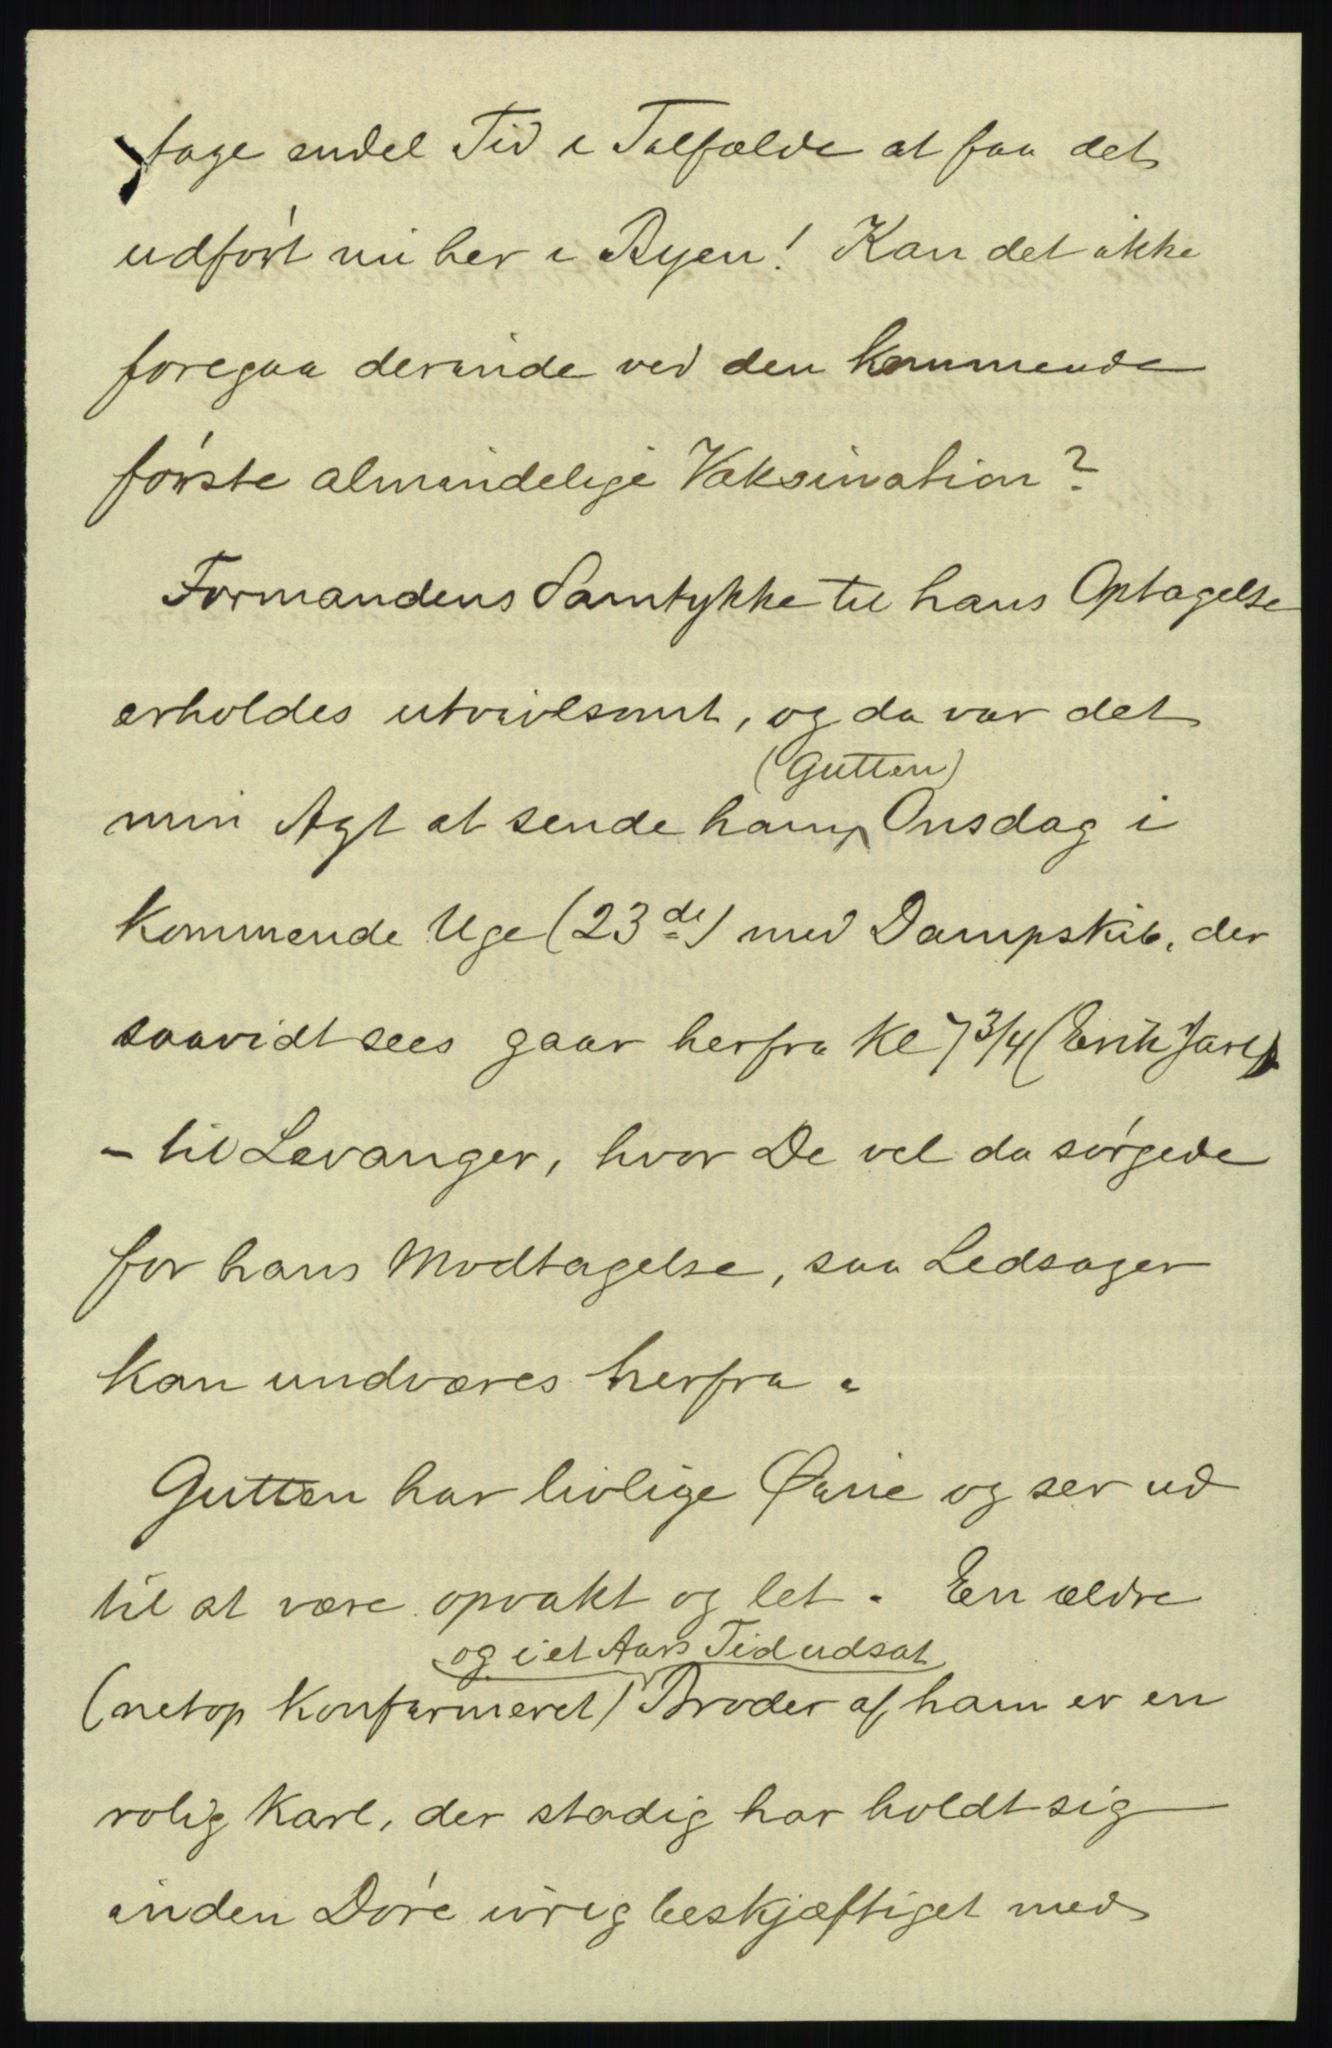 tage endel Tid i Tilfælde at faa det
udført nu her i Byen! Kan det ikke
foregaa derinde ved den kommende
første almindelige Vaksination?
Formandens Samtykke til hans Optagelse
erholdes utvivlsomt, og da var det
(Gutten)
min Agt at sende ham Onsdag i
kommende Uge (23de) med Dampskib, der
saavidt sees gaar herfra Kl 7 3/4 (Erik Jarl)
- til Levanger, hvor De vel da sørgede
for hans Modtagelse, saa Ledsager
kan undværes herfra.
Gutten har livlige Øine og ser ud
til at være opvakt og let. En ældre
og i et Aars Tid udsat
(netop Konfirmeret) Broder af ham er en
rolig Karl, der stadig har holdt sig
inden Døre ivrig beskjæftiget med